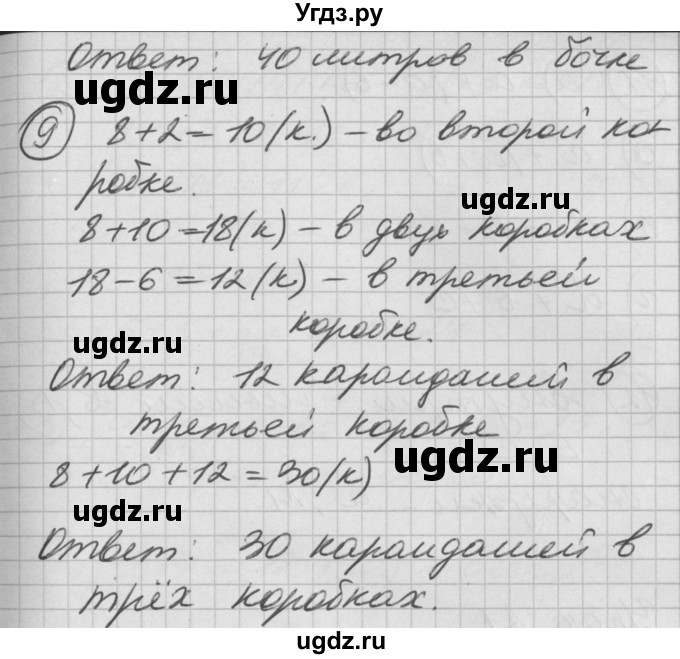 Угдз.ру
Ответ: 40 литров в бочке
ugdz.ru ugdz.ru
9 8+2=10(к.) – во второй ко-
робке.
ugdz.ru
8+10=18(к) – в двух коробках
18-6=12(к) – в третьей
коробке.
ugdz.ru
Ответ: 12 карандашей в
третьей коробке
8+10+12=30(к)
ugdz.ru
ugdz.ru
Ответ: 30 карандашей в
ugdz.ru
трёх коробках.
ugdz.ru